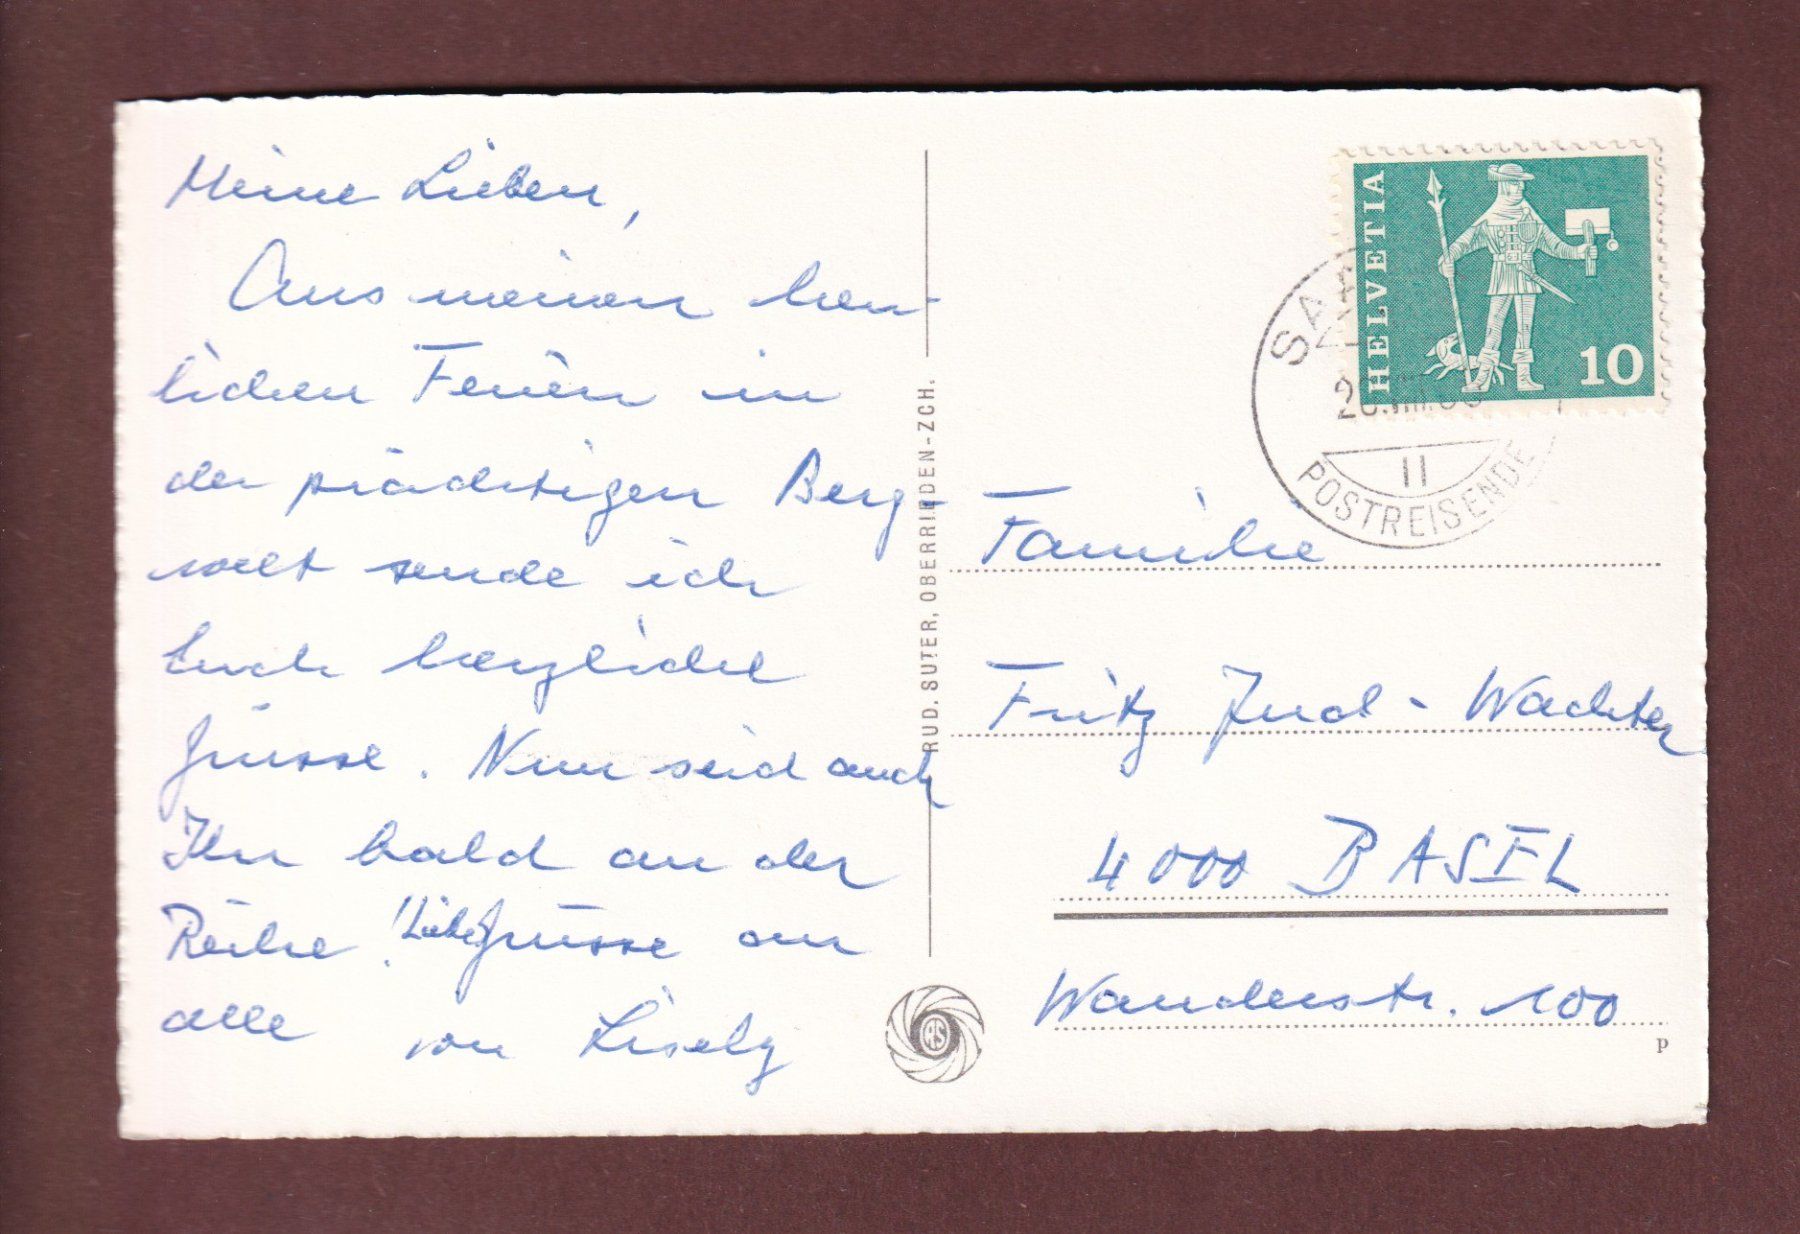 Meine Lieben,
Aus meinen herr-
lichen Ferien in
der prächtigen Berg-
welt sende ich
Euch herzliche
Grüsse. Nun seid auch
Ihr bald an der
Reihe! Liebe Grüsse an
alle von Lisely
RUD. SUTER, OBERRIEDEN-ZCH.
HELVETIA
10
II
POSTREISENDE
Familie
Fritz Jud-Wachter
4000 BASEL
Wanderstr. 100
P